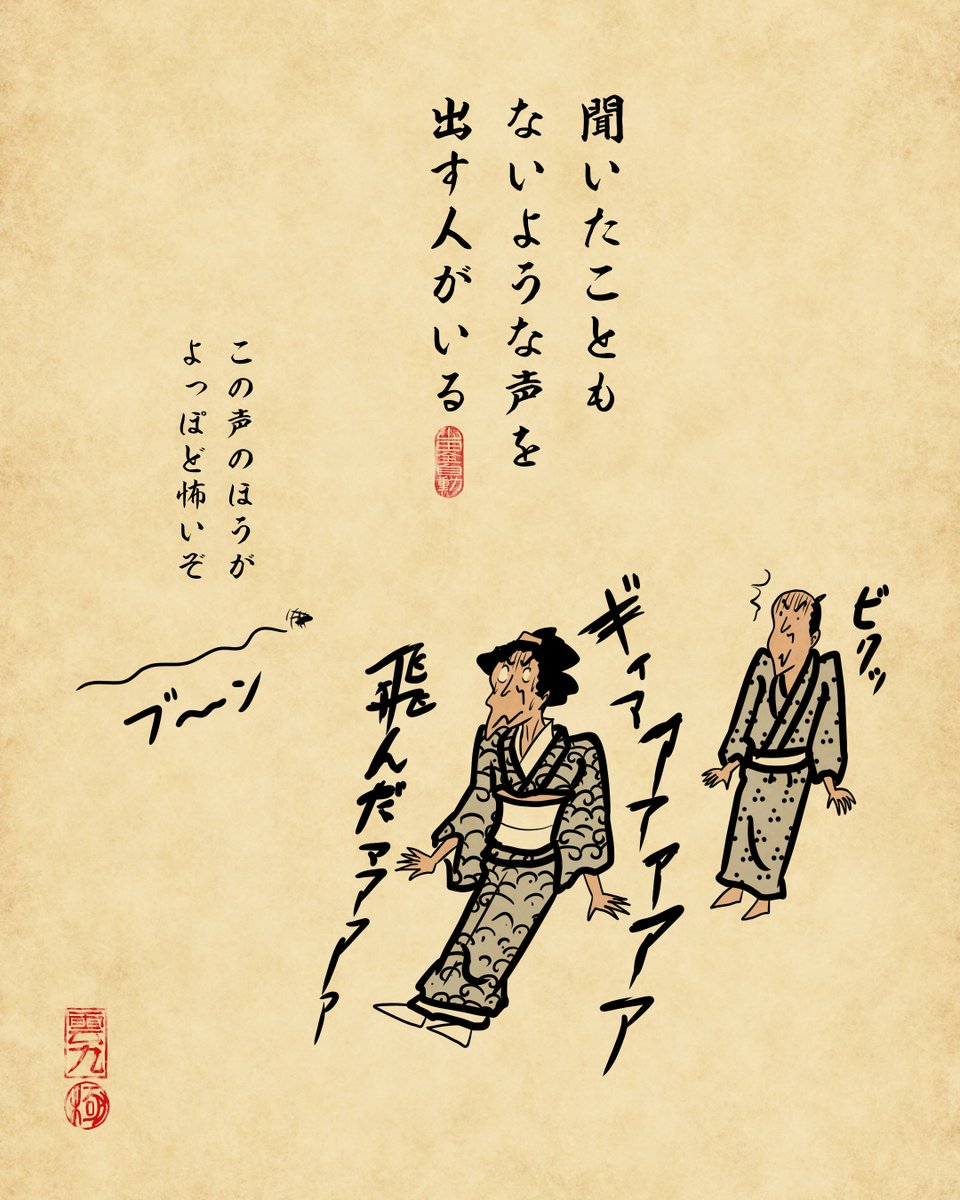 聞いたことも
ないような声を
出す人がいる
この声のほうが
よっぽど怖いぞ
ビクッ
ギィアアアアアアア
飛んだァァァァァ
ブ〜ーン